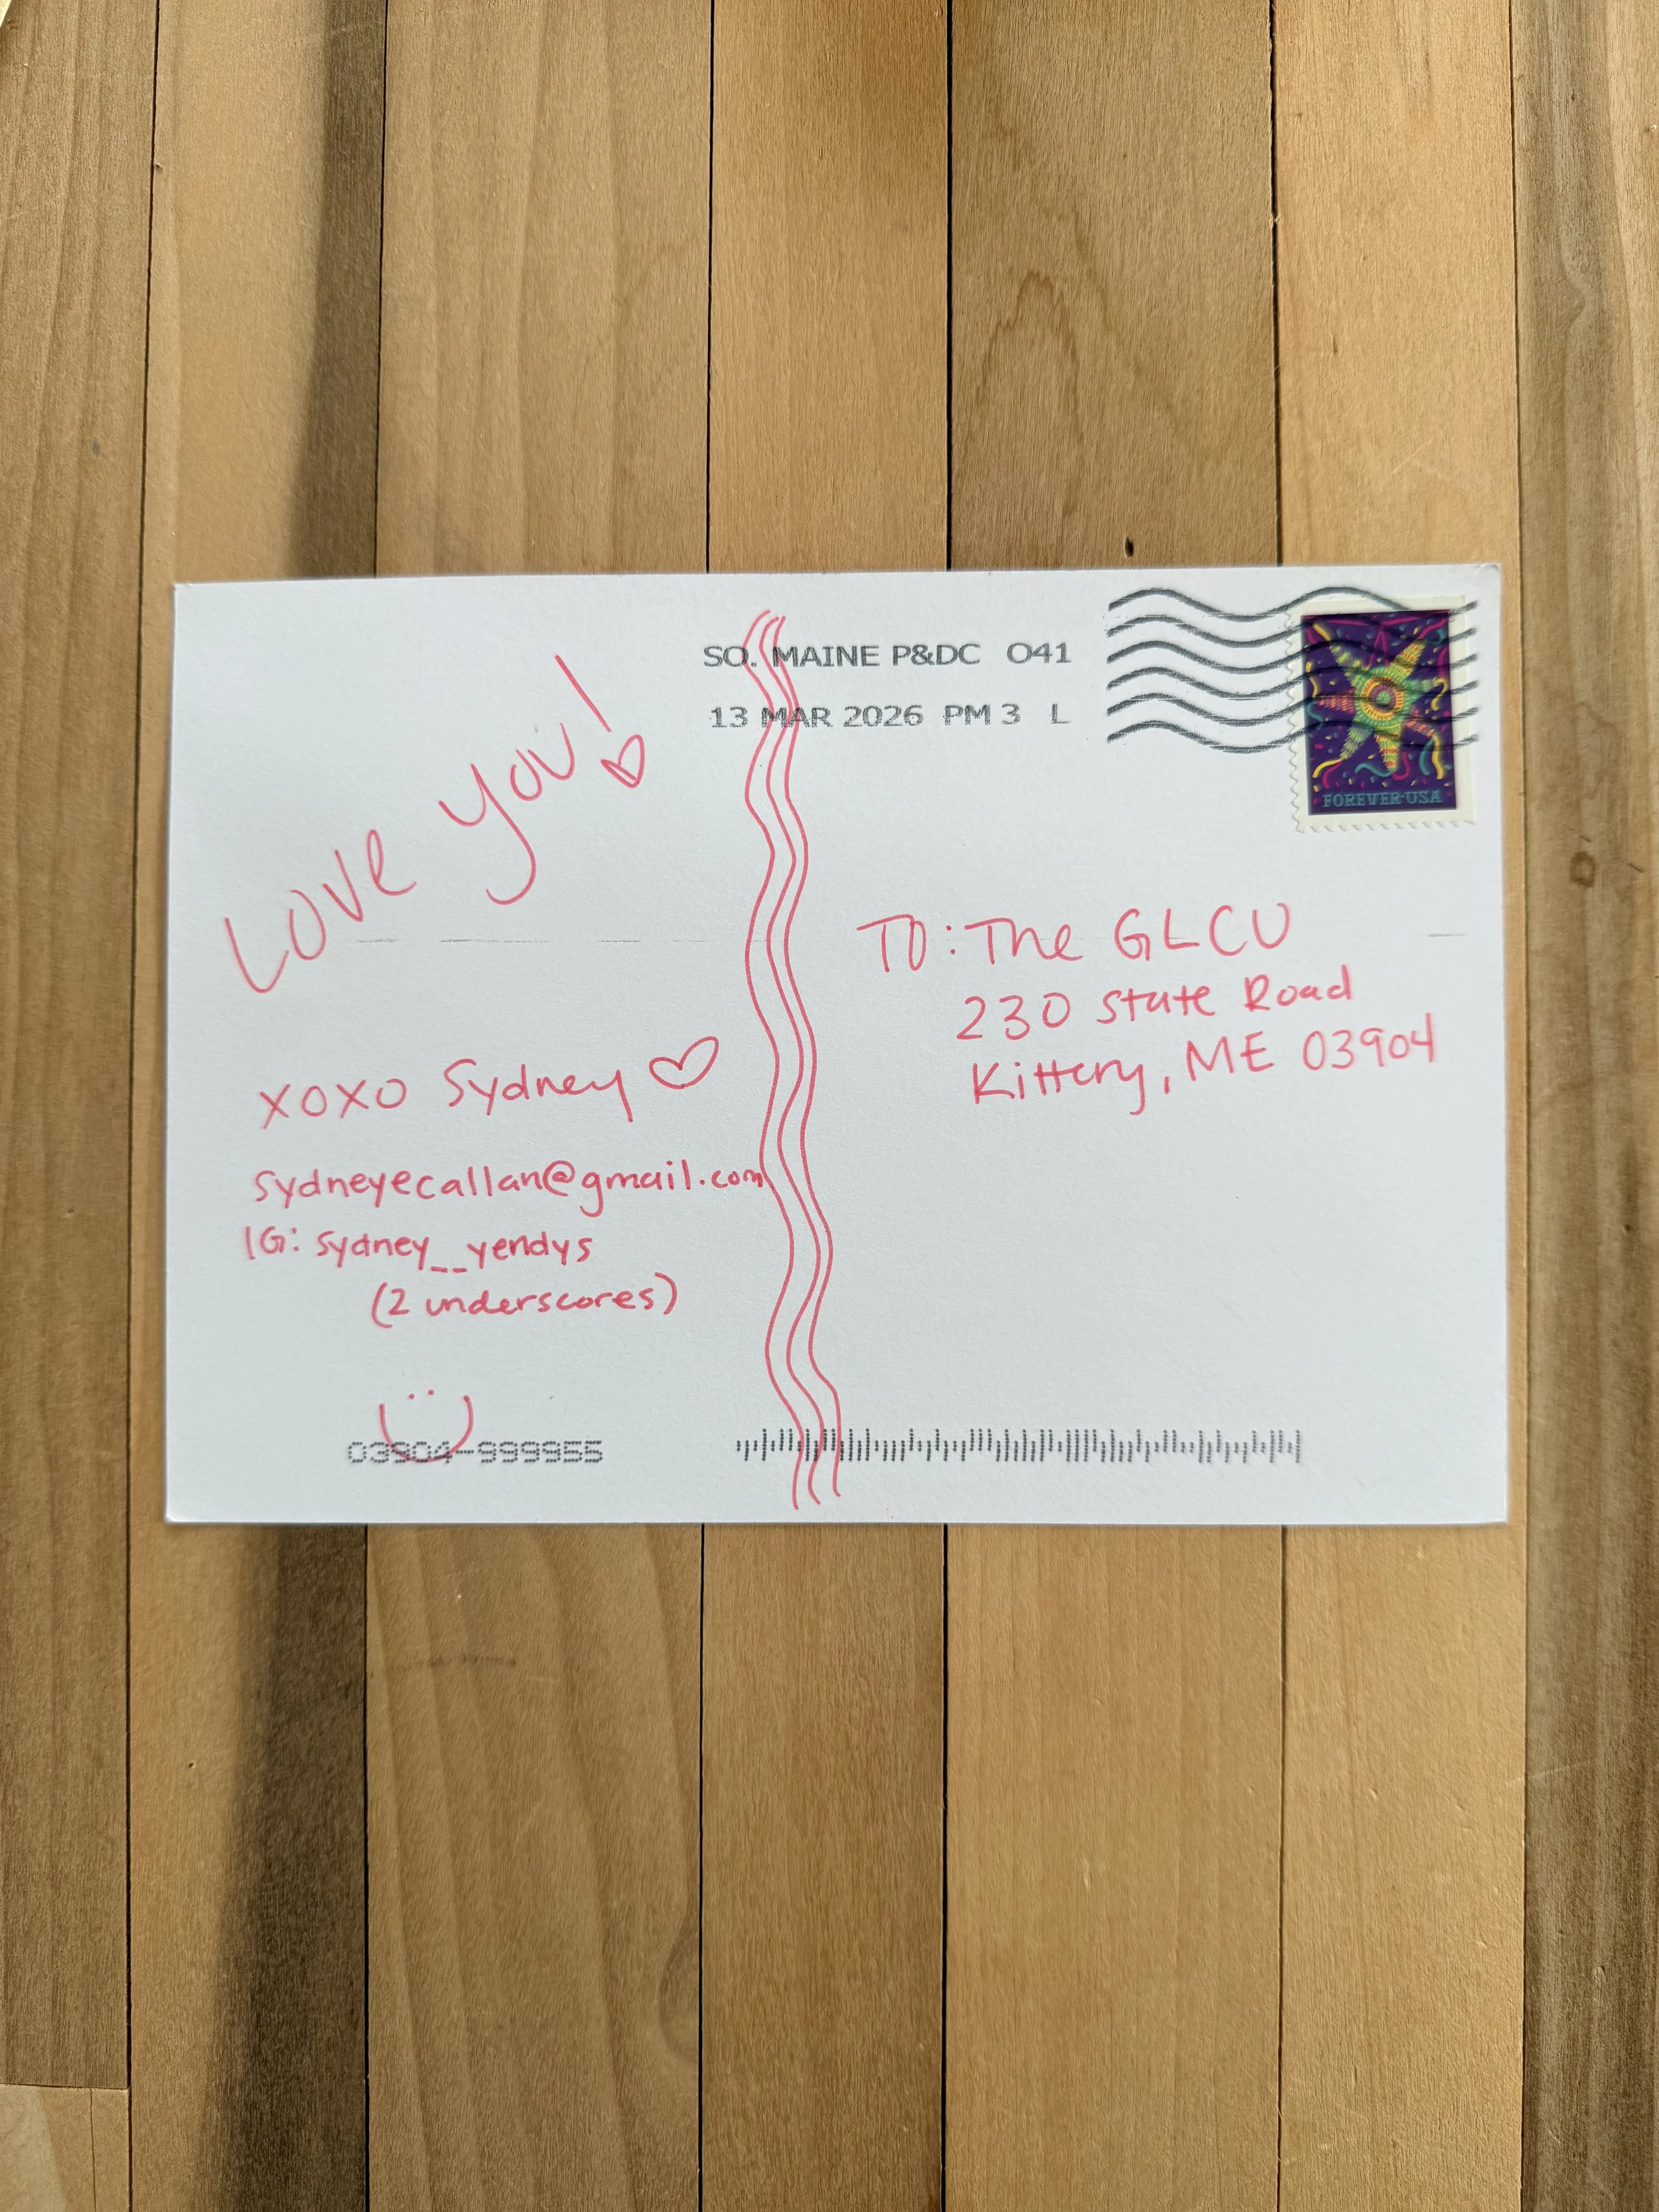 Love you!
xoxo Sydney
sydneyecallan@gmail.com
IG: sydney__yendys
(2 underscores)
03904-999955
SO. MAINE P&DC 041
13 MAR 2026 PM 3 L
FOREVER USA
TO: The GLCU
230 State Road
Kittery, ME 03904